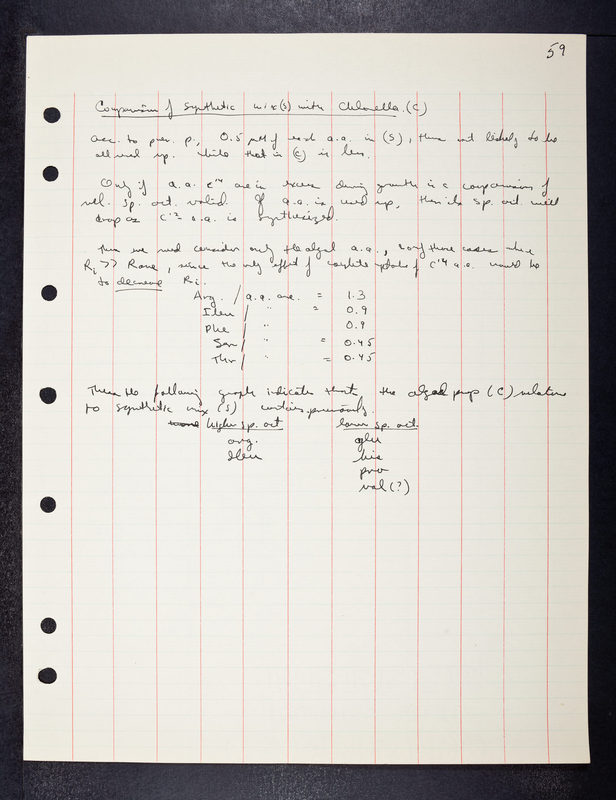 59
Comparison of synthetic mix (S) with Chlorella (C)
acc. to prev. p., 0.5 μM of each a.a. in (S), thus not likely to be
all used up. while that in (C) is less.
Only if a.a. C14 are in excess during growth is a comparison of
rel. sp. act. valid. If a.a. is used up, then its sp. act. will
drop as C12 a.a. is synthesized.
Thus we need consider only the algal a.a., & only those cases where
Ri >> Rave, since the only effect of complete uptake of C14 a.a. would be
to decrease Ri.
Arg. / a.a. ave. = 1.3
Ileu / " = 0.9
Phe / " 0.9
Ser / " = 0.45
Thr / " = 0.45
Thus the following graph indicates that the algal prep (C) relative
to synthetic mix (S) contains
higher sp. act lower sp. act.
arg. glu
Ileu his
pro
val (?)